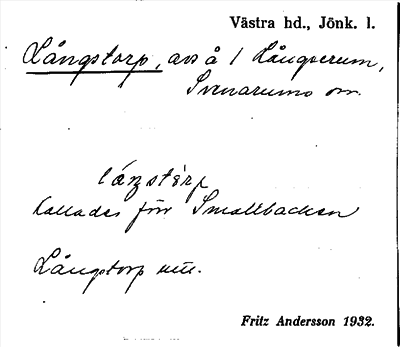 Västra hd., Jönk. l.
Långstorp, avs å 1 Långserum,
Svenarums sn.
lángstòrp
kallades förr Smallbacken
Långstorp
Fritz Andersson 1932.